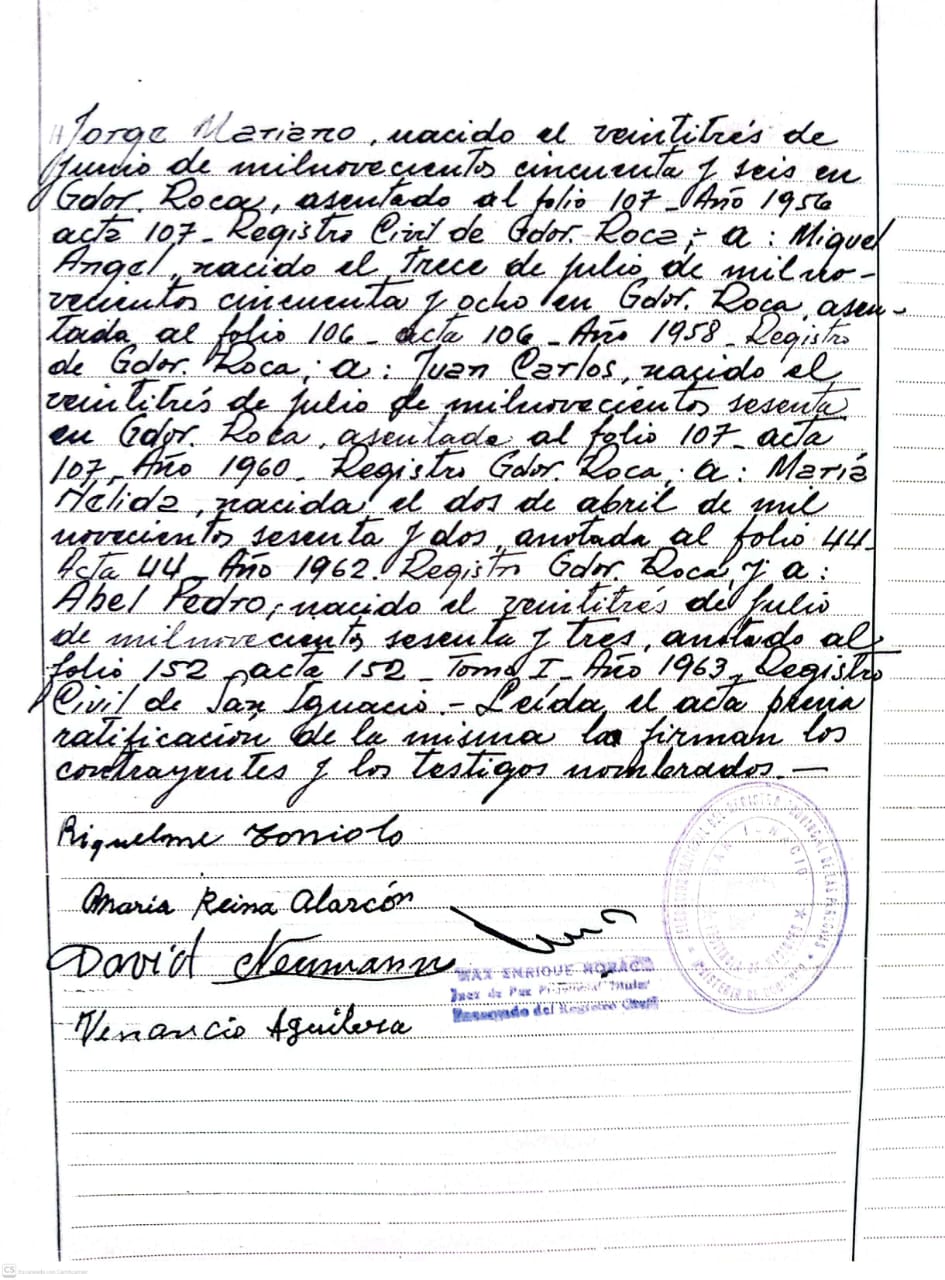 Jorge Mariano, nacido el veintitrés de
junio de milnovecientos cincuenta y seis en
Gdor. Roca, asentado al folio 107_ Año 1956
acta 107_ Registro Civil de Gdor. Roca; - a: Miguel
Angel, nacido el trece de julio de milno-
vecientos cincuenta y ocho en Gdor. Roca, asen-
tada al folio 106_ acta 106_ Año 1958_ Registro
de Gdor. Roca; a: Juan Carlos, nacido el
veintitrés de julio de milnovecientos sesenta
en Gdor. Roca, asentada al folio 107_ acta
107_ Año 1960_ Registro Gdor. Roca; a: María
Nélida, nacida el dos de abril de mil
novecientos sesenta y dos, anotada al folio 44_
Acta 44_ Año 1962. Registro Gdor. Roca, y a:
Abel Pedro, nacido el veintitrés de julio
de milnovecientos sesenta y tres, anotado al
folio 152_ acta 152_ Tomo I_ Año 1963_ Registro
Civil de San Ignacio.- Leída el acta previa
ratificación de la misma la firman los
contrayentes y los testigos nombrados.—
Riquelme Toniolo
María Reina Alarcón
David Neumann
MAX ENRIQUE
Juez de Paz Titular
Encargado del Registro Civil
Venancio Aguilera
SAN IGNACIO
CS Escaneado con CamScanner